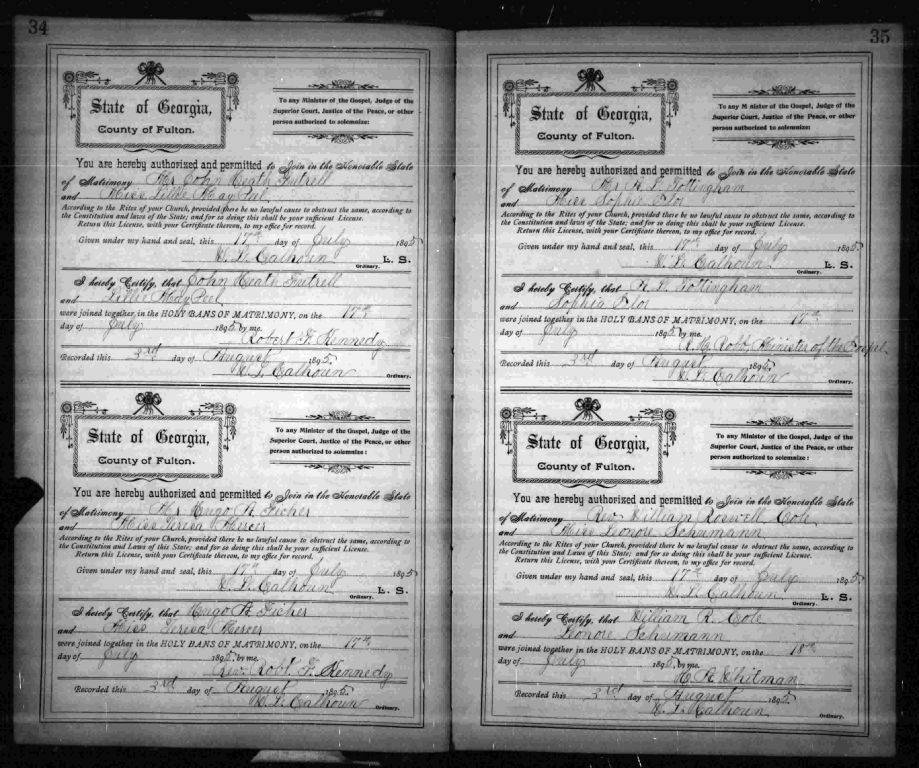 34
State of Georgia,
County of Fulton.
To any Minister of the Gospel, Judge of the
Superior Court, Justice of the Peace, or other
person authorized to solemnize:
You are hereby authorized and permitted to Join in the Honorable State
of Matrimony Mr John Heath Futrell
and Miss Lillie May Peel
According to the Rites of your Church, provided there be no lawful cause to obstruct the same, according to
the Constitution and laws of the State; and for so doing this shall be your sufficient License.
Return this License, with your Certificate thereon, to my office for record.
Given under my hand and seal, this 17th day of July 1895
W. L. Calhoun L. S.
Ordinary.
I hereby Certify, that John Heath Futrell
and Lillie May Peel
were joined together in the HOLY BANS OF MATRIMONY, on the 17th
day of July 1895 by me.
Robert F. Kennedy
Recorded this 3rd day of August 1895
W. L. Calhoun Ordinary.
State of Georgia,
County of Fulton.
To any Minister of the Gospel, Judge of the
Superior Court, Justice of the Peace, or other
person authorized to solemnize:
You are hereby authorized and permitted to Join in the Honorable State
of Matrimony Mr Hugo A. Ficher
and Miss Teresa Mercer
According to the Rites of your Church, provided there be no lawful cause to obstruct the same, according to
the Constitution and Laws of this State; and for so doing this shall be your sufficient License.
Return this License, with your Certificate thereon, to my office for record.
Given under my hand and seal, this 17th day of July 1895
W. L. Calhoun L. S.
Ordinary.
I hereby Certify, that Hugo A. Ficher
and Miss Teresa Mercer
were joined together in the HOLY BANS OF MATRIMONY, on the 17th
day of July 1895, by me.
Rev. Robt. F. Kennedy
Recorded this 3rd day of August 1895
W. L. Calhoun Ordinary.
35
State of Georgia,
County of Fulton.
To any M nister of the Gospel, Judge of the
Superior Court, Justice of the Peace, or other
person authorized to solemnize:
You are hereby authorized and permitted to Join in the Honorable State
of Matrimony Mr A. L. Tottingham
and Miss Sophie Flor
According to the Rites of your Church, provided there be no lawful cause to obstruct the same, according to
the Constitution and laws of the State; and for so doing this shall be your sufficient License.
Return this License, with your Certificate thereon, to my office for record.
Given under my hand and seal, this 17th day of July 1895
W. L. Calhoun L. S.
Ordinary.
I hereby Certify, that A. L. Tottingham
and Sophia Flor
were joined together in the HOLY BANS OF MATRIMONY, on the 17th
day of July 1895 by me.
Minister of the Gospel
Recorded this 3rd day of August 1895
W. L. Calhoun Ordinary.
State of Georgia,
County of Fulton.
To any Minister of the Gospel, Judge of the
Superior Court, Justice of the Peace, or other
person authorized to solemnize:
You are hereby authorized and permitted to Join in the Honorable State
of Matrimony Rev William Roswell Cole
and Miss Leonore Schumann
According to the Rites of your Church, provided there be no lawful cause to obstruct the same, according to
the Constitution and Laws of this State; and for so doing this shall be your sufficient License.
Return this License, with your Certificate thereon, to my office for record.
Given under my hand and seal, this 17th day of July 1895
W. L. Calhoun L. S.
Ordinary.
I hereby Certify, that William R. Cole
and Leonore Schumann
were joined together in the HOLY BANS OF MATRIMONY, on the 18th
day of July 1895, by me.
Whitman
Recorded this 3rd day of August 1895
W. L. Calhoun Ordinary.